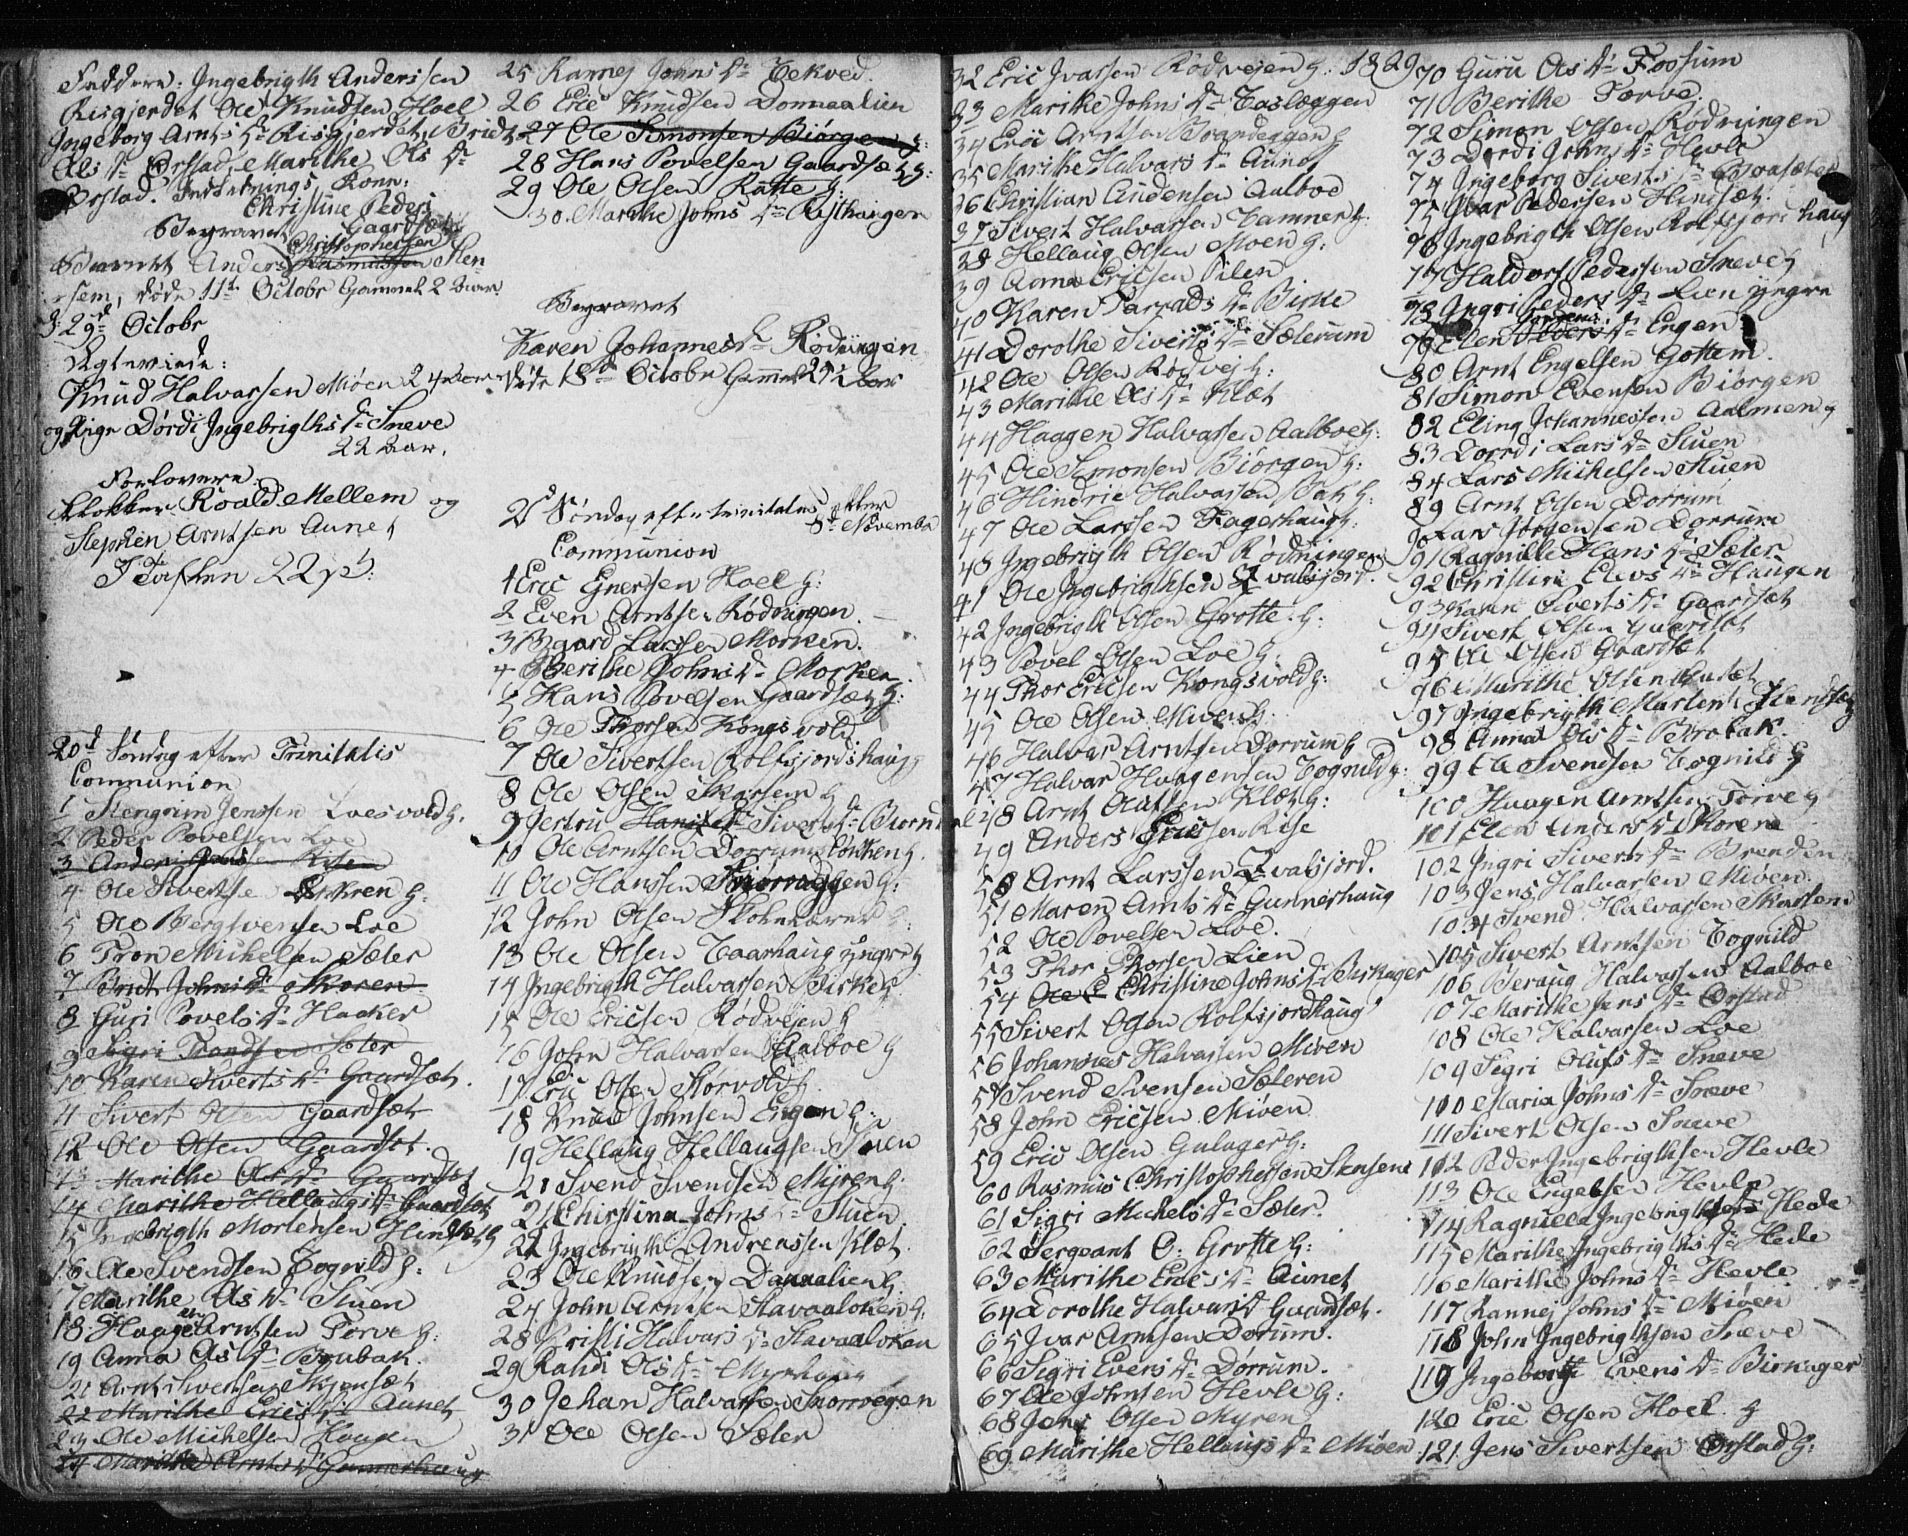 Faddere: Ingebrigth Anderssen
Risgjerdet Ole Knudsen Hoel
Ingeborg Arnts Dr Risgjerdet, Bridt
Ols Dr Ørstad, Marithe Ols Dr
Ørstad. Indlednings Kone:
Christine Peders
Gaardsæt
Begravet
Christophersen
Anders Rasmussen Sten-
sem, døde 11te Octobr Gammel 2 Aar
D: 29d Octobr
Ægteviede:
Knud Halvarsen Miøen 24 Aar
og Pige Dørdi Ingebrigths Dr Sneve
22 Aar.
Forlovere:
Klokker Roald Mellem og
Stephen Arntsen Aunet
I Tafflen 22 s:
20d Søndag efter Trinitatis
Communion
1 Stengrim Jenssen Loesvold g.
2 Peder Povelsen Loe
3 Anders Risen
4 Ole Sivertse g:
5 Ole Bergsvensen Loe
6 Tron Michelsen Sæter
7 Bridt Johns Dr Skoren
8 Guri Povels Dr Hacker
9 Sigri Trondsen Sæter
10 Karen Siverts Dr Gaardsæt.
11 Sivert Olsen Gaardsæt
12 Ole Olsen Gaardsæt.
13 Marithe Ols Dr Gaardsæt
14 Marithe Hellaugs Dr Gaardsæt
15 Ingebrigth Mortensen Hindsæt g
16 Ole Svendsen Tognild g:
17 Marithe Ols Dr Stuen
18 Haagen Arntsen Torve g:
19 Anna Ols Dr Brubak.
21 Arnt Sivertsen Skjønsæt
22 Marithe Erics Dr Aunet
23 Ole Michelsen Haugen
24 Marithe Arnts Dr Gunnershaug
25 Rannej Johns Dr Tekved.
26 Eric Knudsen Donnaalien
27 Ole Simonsen Biørgen g:
28 Hans Povelsen Gaardsæt g:
29 Ole Olsen Ratte g:
30. Marithe Johns Dr Rijthaugen
Begravet
Karen Johannes Dr Rødningen
døde 18d Octobr Gammel Aar
2d Søndag efter trinitatis efter
8d Novembr
Communion
1 Eric Enersen Hoel g:
2 Even Arntsen Rødningen.
3 Baard Larssen Morken.
4 Berithe Johns Dr Morken.
5 Hans Povelsen Gaardsæt g:
6 Ole Thorsen Kongsvold
7 Ole Sivertsen Rolfsjordshaug g
8 Ole Olsen Skarsem g
9 Jertru Hans Dr Siverts Dr Biørndal
10 Ole Arntsen Dorrumsløkken g.
11 Ole Hanssen Snorroeggen g:
12 John Olsen g:
13 Ole Olsen Taarhaug yngre g
14 Ingebrigth Halvarsen Birke g
15 Ole Ericsen Rødvejen g
16 John Halvarsen Aalboe g
17 Eric Olsen Storvold g.
18 Knud Johnsen Engen g:
19 Hellaug Hellaugsen Stuen
21 Svend Svendsen Myren g:
21 Christina Johns Dr Stuen.
22 Ingebrigth Andreassen Klæt.
23 Ole Knudsen Donnalien g:
24 John Arntsen Stavaaløken g.
28 Kristi Halvars Dr Stavaaloken
29 Randi Ols Dr Myrhaug
30 Johan Halvarsen Snorroegen
31 Ole Olsen Sæter
32 Eric Ivarsen Rødvejen g: 1829
33 Marithe Johns Dr Tosloeggen
34 Eric Arntsen Brandeggen g
35 Marithe Halvars Dr Aunet
36 Christian Audensen Aalboe
37 Sivert Halvarsen Tamner g:
38 Hellaug Olsen Moen g:
39 Anna Ericsen Pilen
40 Karen Taralds Dr Birke
41 Dorothe Siverts Dr Sæterum
42 Ole Olsen Rødvej g:
43 Marithe Ols Dr Klæt
44 Haagen Halvarsen Aalboe g:
45 Ole Simonsen Biørgen g:
46 Hindric Halvarsen Bak g:
47 Ole Larssen Fagerhaug g:
48 Ingebrigth Olsen Rødningen
41 Ole Ingebrigthsen Qvalsjord.
42 Ingebrigth Olsen Grøtte g:
43 Povel Olsen Loe g:
44 Thor Ericsen Kongsvold g:
45 Ole Olsen Miøen g:
46 Halvar Arntsen Dorrum g
47 Halvar Haagensen Tognild g:
48 Arnt Olufsen Klæt g:
49 Anders Ericsen Rise
50 Arnt Larssen Qvalsjord.
51 Maren Arnts Dr Gunnershaug
52 Ole Povelsen Loe.
53 Thor Thorsen Lien
54 Ole E Christine Johns Dr Birkager
55 Sivert Olsen Rolfsjordhaug
56 Johannes Halvarsen Miøen
57 Svend Svensen Sæteren
58 John Ericsen Miøen
59 Eric Olsen Gulager g:
60 Rasmus Christophersen Stensem
61 Sigri Michels Dr Sæter.
62 Sergeant O: Grøtte g:
63 Marithe Erics Dr Aunet
64 Dorothe Halvars Dr Gaardsæt.
65 Ivar Arntsen Dorum.
66 Sigri Evens Dr Dørrum.
67 Ole Johnsen Hevle g:
68 Jens Olsen Myren
69 Marithe Hellaugs Dr Miøen
70 Guru Ols Dr Fossum
71 Berithe Torve
72 Simon Olsen Rødningen
73 Dordi Johns Dr Hevle
74 Ingeborg Siverts Dr Broasæter
75 Ivar Pedersen Hindsæt.
76 Ingebrigth Olsen Rolfsjordshaug
77 Haldors Pedersen Sneve g
78 Ingri Peders Dr Lien yngre
79 Elen Dr Engen
80 Arnt Engelsen Gottem.
81 Simon Evensen Biørgen
82 Eling Johannessen Aalmen g
83 Dorrdi Lars Dr Stuen
84 Lars Michelsen Stuen
89 Arnt Olsen Dorrum
90 Lars Jørgensen Dorrum
91 Ragnille Hans Dr Sæter
92 Christine Elevs Dr Haugen
93 Karen Siverts Dr Gaardsæt
94 Sivert Olsen Gaardsæt
95 Ole Olsen Gaardsæt
96 Marithe Olsen
97 Ingebrigth Morten Hindsæt g
98 Anna Ols Dr Brobak.
99 Ole Svendsen Tognild g
100 Haagen Arntsen Torve g
101 Elen Anders Dr Skorene
102 Ingri Siverts Dr Brenden
103 Jens Halvarsen Miøen.
104 Svend Halvarsen Skarsem
105 Sivert Arntsen Tognild
106 Beraug Halvarsen Aalboe
107 Marithe Jens Dr Ørstad
108 Ole Halvarsen Loe
109 Sigri Olufs Dr Sneve
110 Maria Johns Dr Sneve
111 Sivert Olsen Sneve
112 Peder Ingebrigthsen Hevle
113 Ole Engelsen Hevle
114 Ragnille Ingebrigths Hede
115 Marithe Ingebrigths Dr Hede
116 Marithe Johns Dr Hevle
117 Rannej Johns Dr Miøen
118 John Ingebrigthsen Sneve
119 Ingeborg Evens Dr Birkager
120 Eric Olsen Hoel. g
121. Jens Sivertsen Ørstad g: